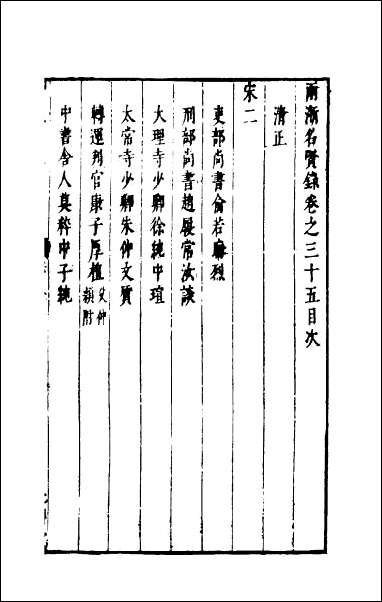 兩浙名賢錄卷之三十五目次
清正
宋二
吏部尚書俞若烈
刑部尚書趙履常汝談
大理寺少卿徐純中瑄
太常寺少卿朱仲文質
轉運判官康子厚植 父仲穎附
中書舍人莫粹中子純